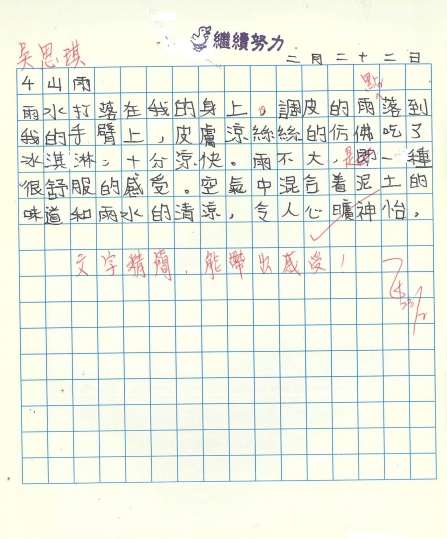 繼續努力
吳思琪
二月二十二日
4 山雨
點
雨水打落在我的身上。調皮的雨落到
我的手臂上，皮膚涼絲絲的仿佛吃了
冰淇淋，十分涼快。雨不大，是一種
很舒服的感受。空氣中混合着泥土的
味道和雨水的清涼，令人心曠神怡。
文字精簡，能帶出感受！